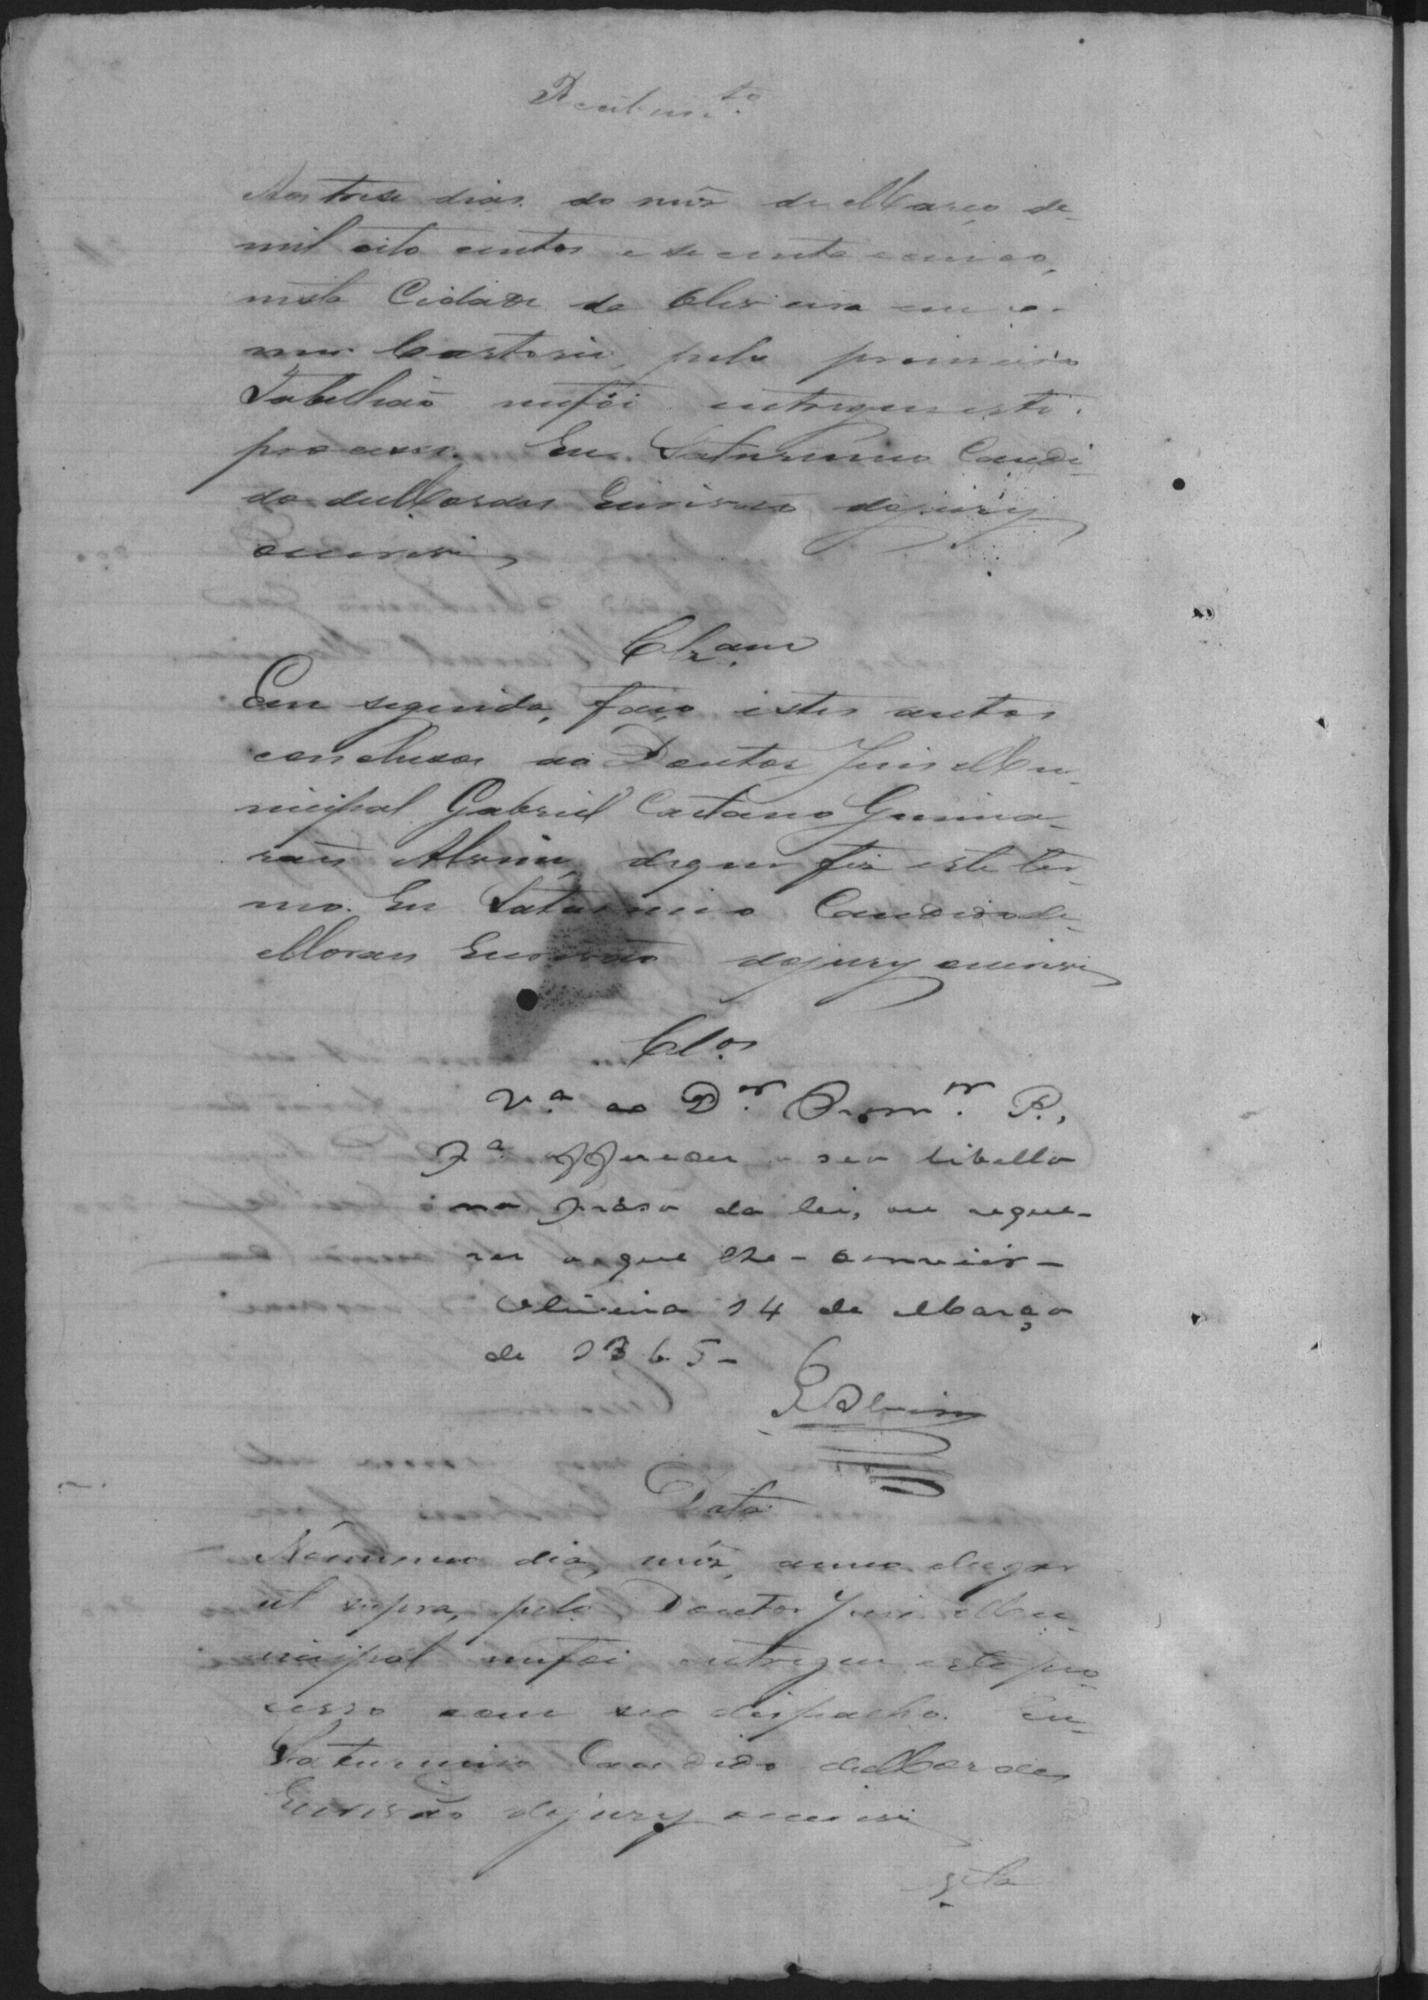 Recebim.to
Aos trese dias do mês de Março de
mil oito centos e secenta e cinco,
nesta Cidade de Oliveira em o
meu Cartorio, pelo primeiro
Tabellião me foi entregue este
processo. Eu Saturnino Candi-
do de Moraes Escrivão do jury
o escrevi
Clzam
Em seguida, faço estes autos
conclusos ao Doutor Juis Mu-
nicipal Gabriel Caetano Guima-
raes Alvim, de que fiz este ter-
mo. Eu Saturnino Candido de
Moraes Escrivão do jury o escrevi
Cl.os
V.a ao D.r Prom.r P.,
p.a offerecer o seo libello
no praso da lei, ou reque-
rer o que lhe convier-
Oliveira 14 de Março
de 1865-
GAlvim
Data
No mesmo dia, mês, anno e lugar
ut supra, pelo Doutor Juis Mu-
nicipal me foi entregue este pro-
cesso com seo despacho. Eu
Saturnino Candido de Moraes
Escrivão do jury o escrevi